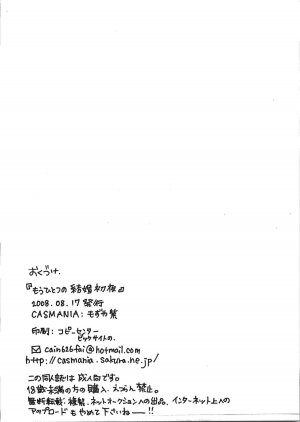 おくづけ.
『もうひとつの結婚初夜』
2008.08.17 発行
CASMANIA: もずや紫
印刷: コピーセンター
ビックサイトの.
✉ cain626fai@hotmail.com
http://casmania.sakura.ne.jp/
この同人誌は成人向です。
18歳未満の方の購入、えつらん禁止。
無断転載・複製、ネットオークションへの出品、インターネット上への
アップロードもやめて下さいねー!!